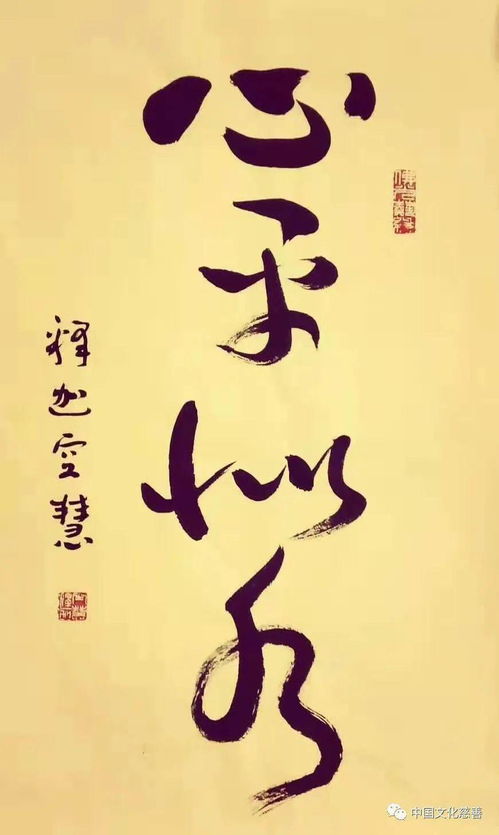 心平似水
释迦空慧
中国文化慈善